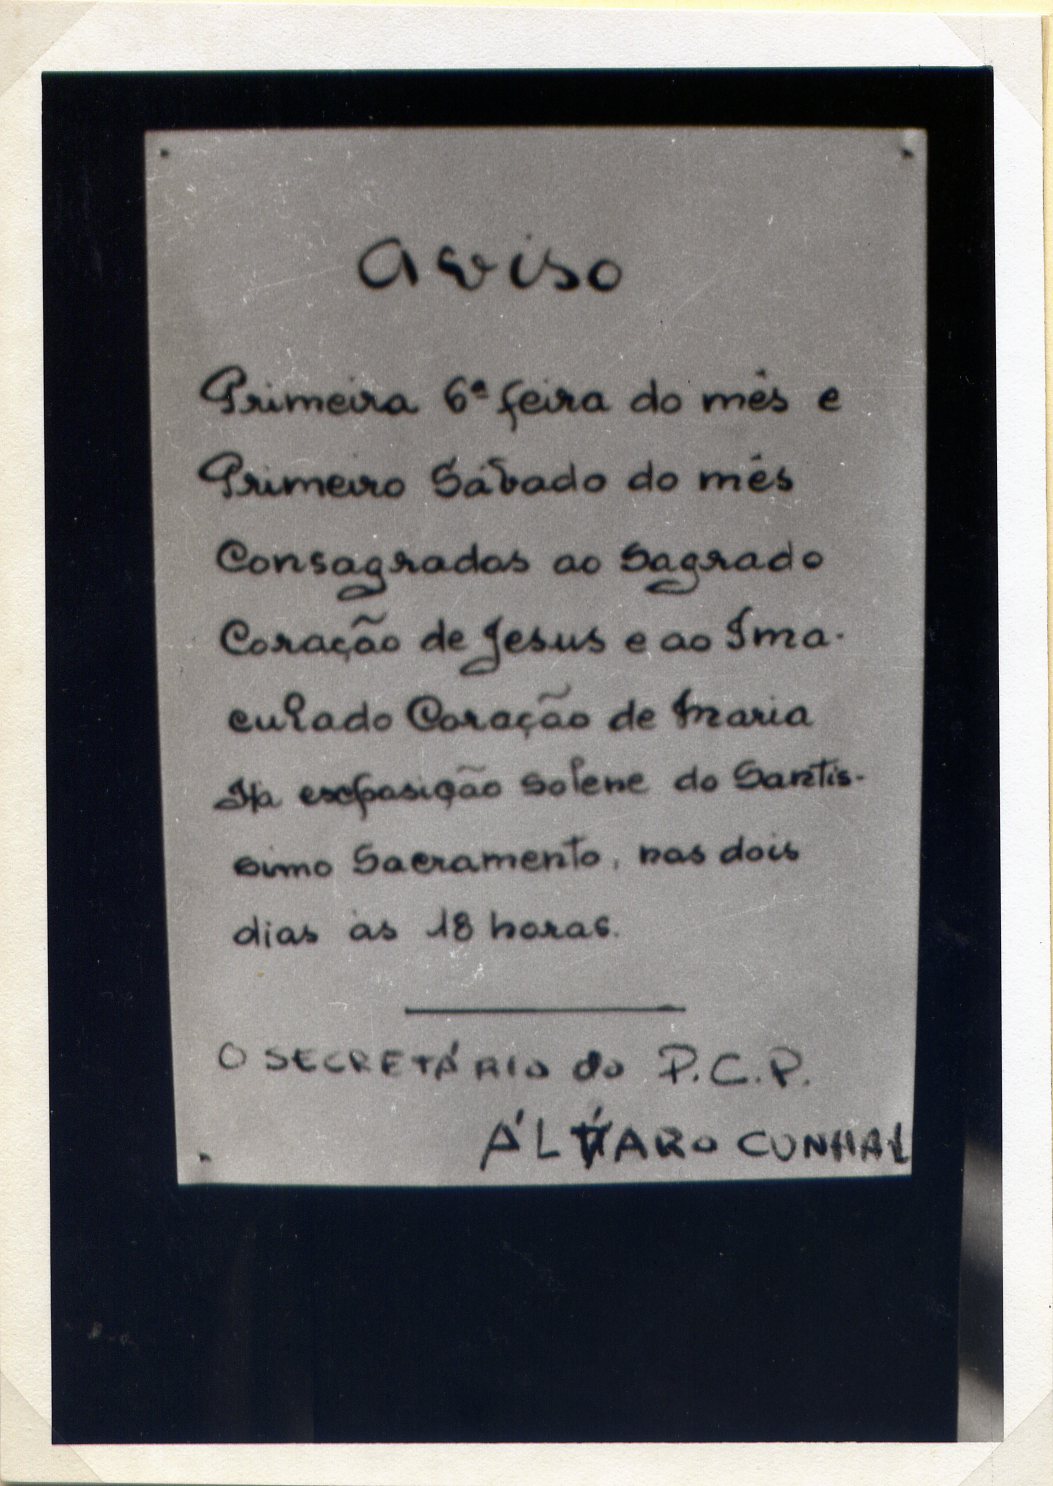 Aviso
Primeira 6ª feira do mês e
Primeiro Sábado do mês
Consagradas ao Sagrado
Coração de Jesus e ao Ima-
culado Coração de Maria
Há exposição solene do Santis-
simo Sacramento, nas dois
dias às 18 horas.
O SECRETÁRIO do P.C.P.
ÁLVARO CUNHAL